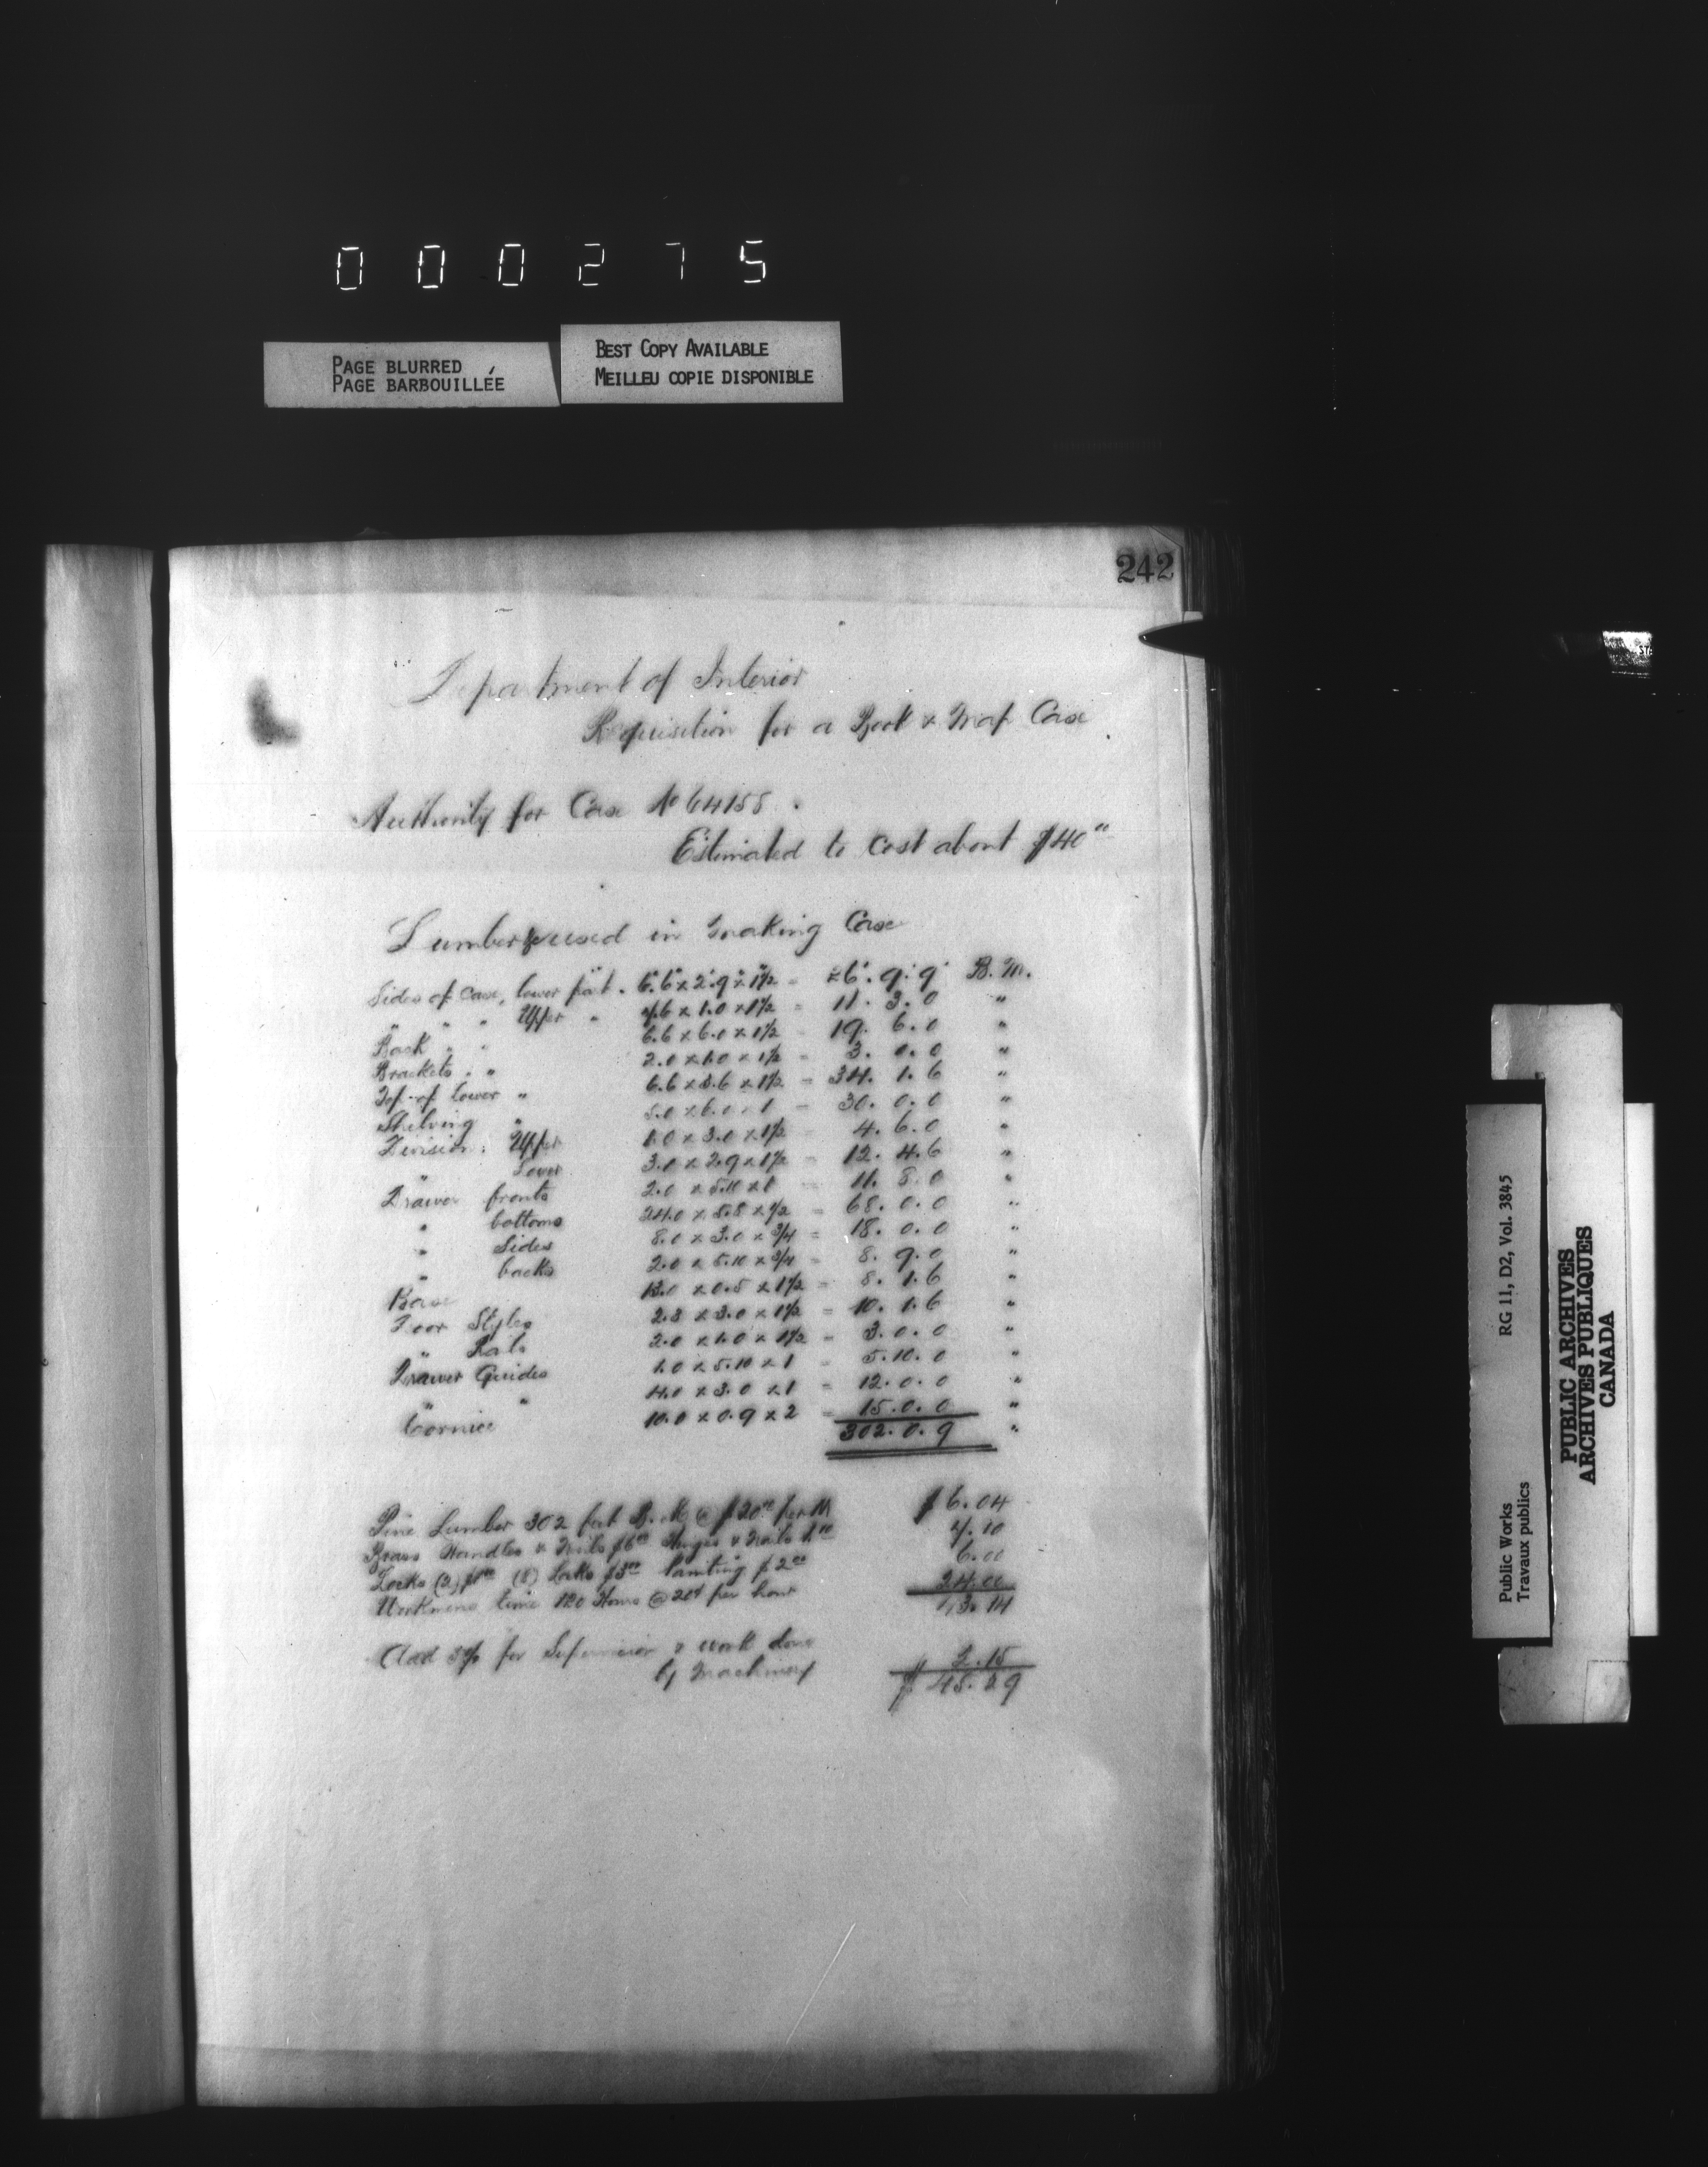 000275
PAGE BLURRED
PAGE BARBOUILLÉE
BEST COPY AVAILABLE
MEILLEU COPIE DISPONIBLE
242
Department of Interior
Requisition for a Book & Map Case
Authority for Case No 64155.
Estimated to cost about $40⁰⁰
Lumber used in making Case
Sides of case, lower part. 6'.6" x 2'.9" x 1½" = 26'. 9'. 9" B. M.
" " " Upper " 7.6 x 1.0 x 1½ = 11. 3. 0 "
Back " " 6.6 x 6.0 x 1½ = 19. 6. 0 "
Brackets " " 2.0 x 1.0 x 1½ = 3. 0. 0 "
Top of lower " 6.6 x 3.6 x 1½ = 34. 1. 6 "
Shelving " 5.0 x 6.0 x 1 = 30. 0. 0 "
Division: Upper 1.0 x 3.0 x 1½ 4. 6. 0 "
" Lower 3.0 x 2.9 x 1½ = 12. 4. 6 "
Drawer fronts 2.0 x 5.10 x 1 = 11. 8. 0 "
" bottoms 24.0 x 5.8 x ½ = 68. 0. 0 "
" Sides 8.0 x 3.0 x ¾ = 18. 0. 0 "
" backs 2.0 x 5.10 x ¾ = 8. 9. 0 "
Base 13.0 x 0.5 x 1½ = 8. 1. 6 "
Door Styles 2.3 x 3.0 x 1½ = 10. 1. 6 "
" Rails 2.0 x 1.0 x 1½ = 3. 0. 0 "
Drawer Guides 1.0 x 5.10 x 1 = 5. 10. 0 "
" " 4.0 x 3.0 x 1 = 12. 0. 0 "
Cornice 10.0 x 0.9 x 2 = 15. 0. 0 "
302. 0. 9 "
Pine Lumber 302 feet B. M @ $20⁰⁰ per M $6.04
Brass Handles & Nails $6⁰⁰ Hinges & Nails 1¹⁰ 7.10
Locks (2) $1⁰⁰ (8) Locks $3⁰⁰ Painting $2⁰⁰ 6.00
Workmens time 120 Hours @ 20¢ per hour 24.00
43.14
Add 5% for Supervision & work done
by Machinery 2.15
$45.29
Public Works RG 11, D2, Vol. 3845
Travaux publics
PUBLIC ARCHIVES
ARCHIVES PUBLIQUES
CANADA